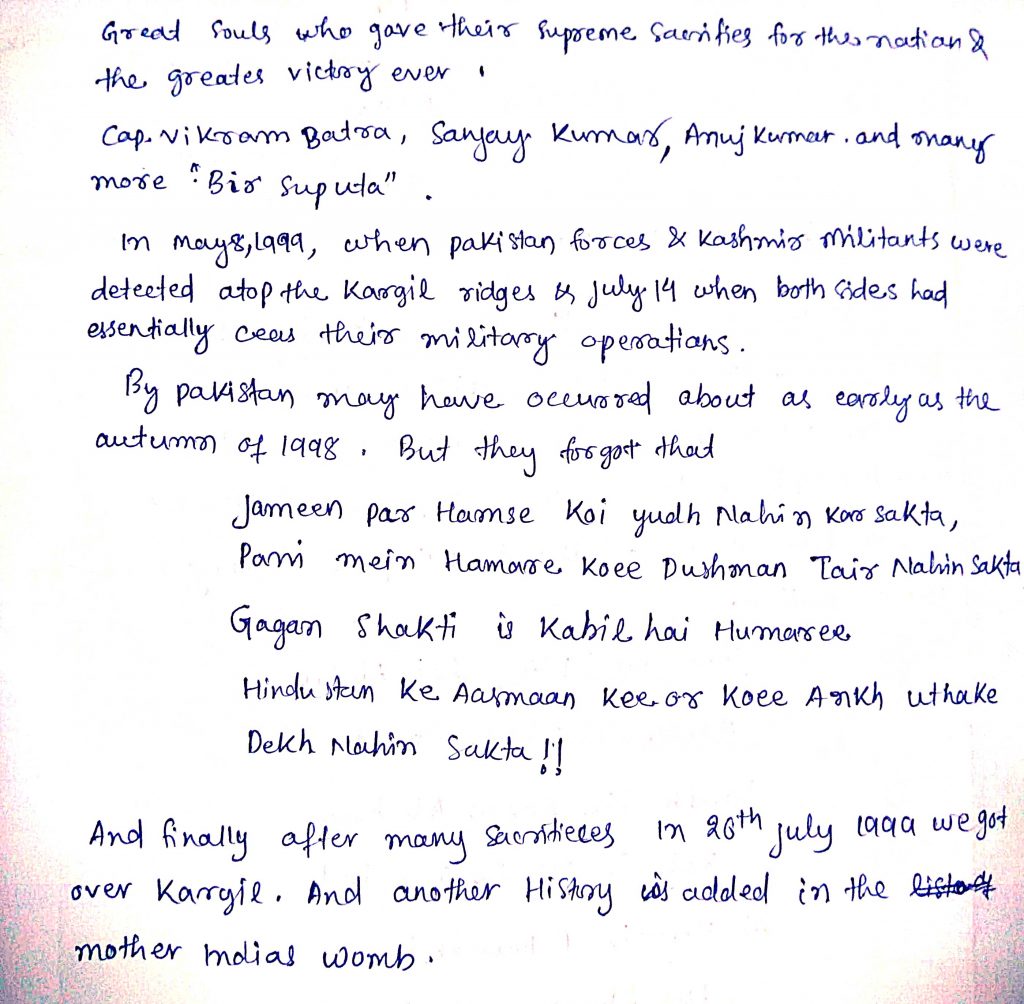 Great souls who gave their supreme sacrifies for the nation &
the greates victory ever .
Cap. Vikram Batra, Sanjay Kumar, Anuj Kumar . and many
more "Bir Suputa" .
In may 8, 1999, when pakistan forces & Kashmir militants were
detected atop the Kargil ridges & July 14 when both sides had
essentially cees their military operations.
By pakistan may have occurred about as early as the
autumn of 1998 . But they forgot that
Jameen par Hamse Koi yudh Nahin kar sakta,
Pani mein Hamare Koee Dushman Tair Nahin Sakta
Gagan Shakti is Kabil hai Humaree
Hindustan Ke Aasmaan Kee or Koee Ankh uthake
Dekh Nahin Sakta !!
And finally after many Sacrifieces In 26th july 1999 we got
over Kargil. And another History is added in the
mother Indias womb .